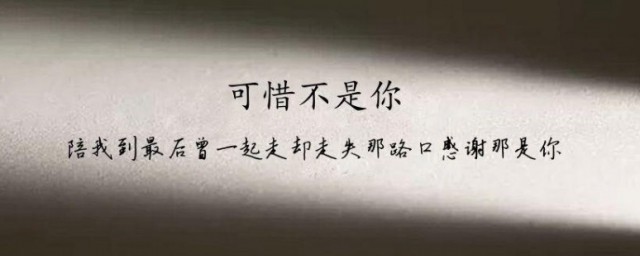 可惜不是你
陪我到最后曾一起走却走失那路口感谢那是你